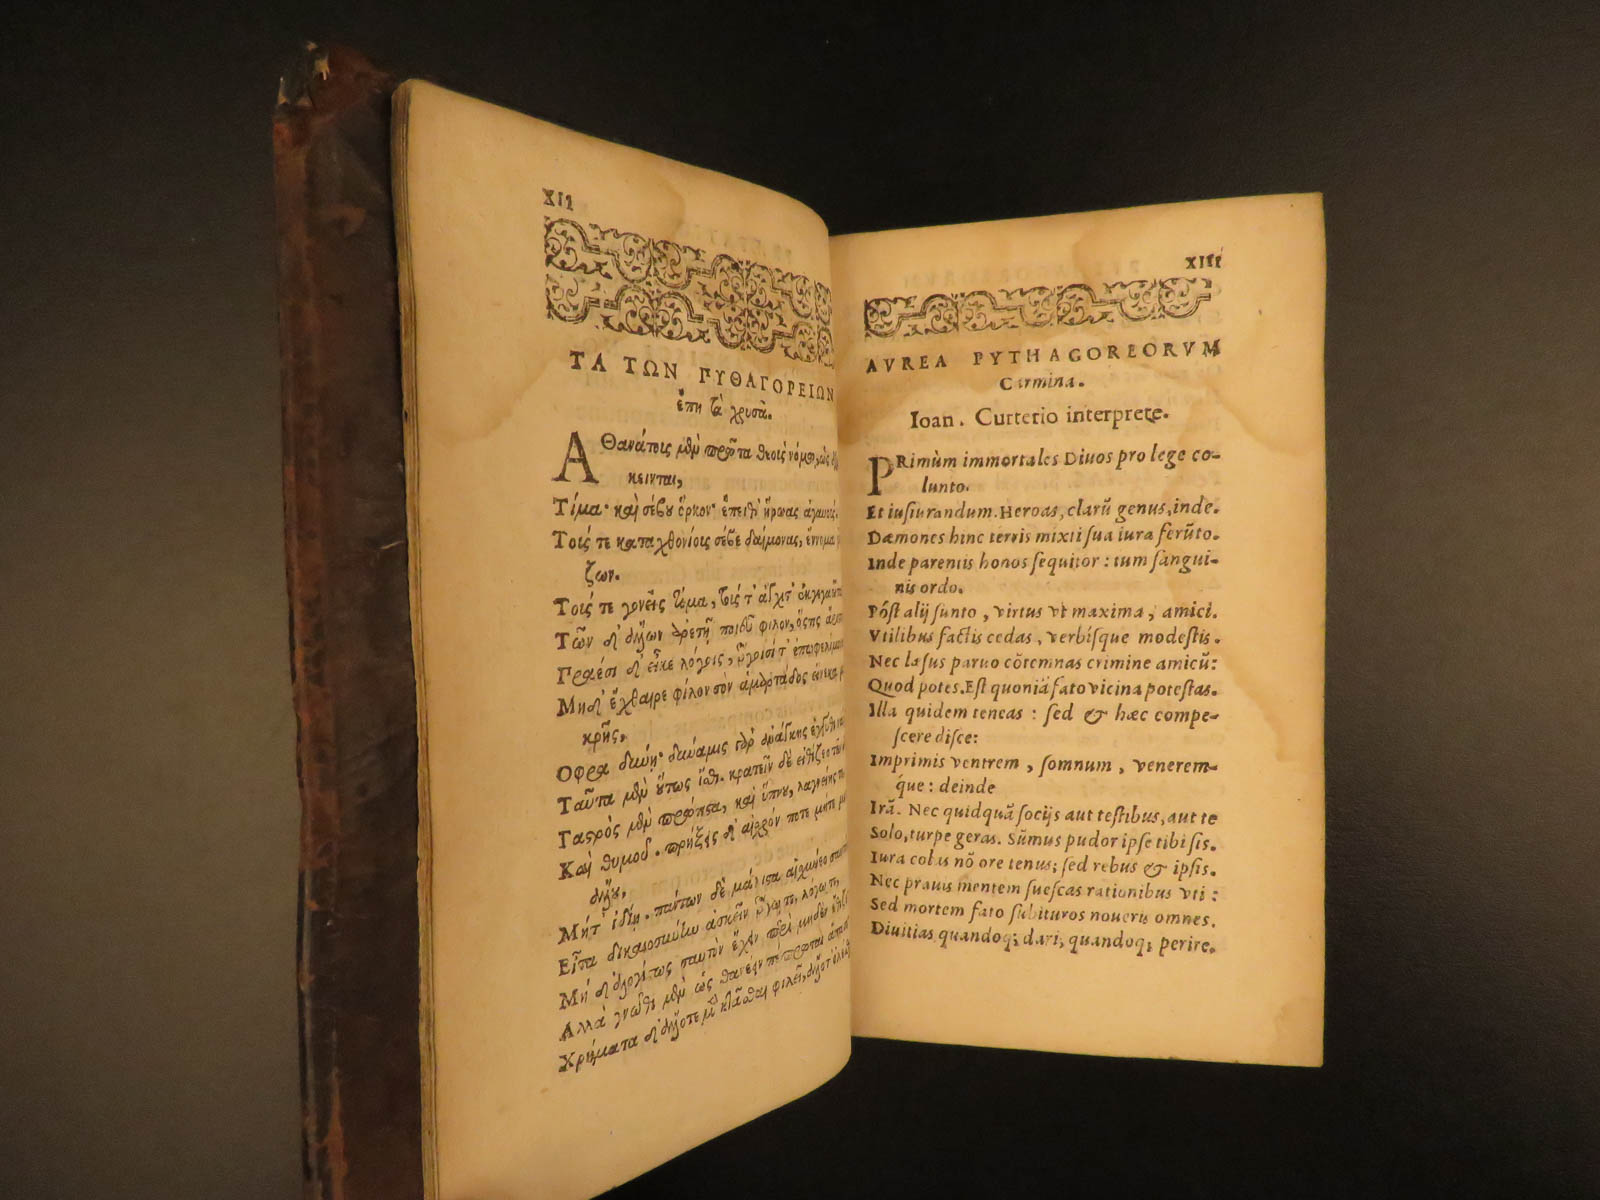 XII
ΤΑ ΤΩΝ ΠΥΘΑΓΟΡΕΙΩΝ
ἔπη τὰ χρυσᾶ.
ΑΘανάτοις μὲν πρῶτα θεοὺς νόμῳ, ὡς
κεινται,
Τίμα· καὶ σέβου ὅρκον· ἔπειθ᾽ ἥρωας ἀγαυούς.
Τούς τε καταχθονίους σέβε δαίμονας, ἔννομα
ζων.
Τούς τε γονεῖς τίμα, τούς τ᾽ ἄγχιστ᾽
Τῶν δ᾽ ἄλλων ἀρετῇ ποιοῦ φίλον, ὅστις
Πραέσι δ᾽ εἶκε λόγοις, ἔργοισί τ᾽
Μηδ᾽ ἔχθαιρε φίλον σὸν ἁμαρτάδος εἵνεκα
κρῆς,
Οφρα δύνῃ· δύναμις γὰρ ἀνάγκης
Ταῦτα μὲν οὕτως ἴσθι. κρατεῖν δὲ εἰθίζεο
Γαστρὸς μὲν πρώτιστα, καὶ ὕπνου, λαγνείης
Καὶ θυμοῦ. πρήξῃς δ᾽ αἰσχρόν ποτε μήτε
ἄλλου,
Μήτ᾽ ἰδίῃ· πάντων δὲ μάλιστα αἰσχύνεο
Εἶτα δικαιοσύνην ἀσκεῖν ἔργῳ τε, λόγῳ τε,
Μὴ δ᾽ ἀλογίστως σαυτὸν ἔχειν περὶ μηδὲν
Αλλὰ γνῶθι μὲν ὡς θανέειν πέπρωται
Χρήματα δ᾽ ἄλλοτε μὲν κτᾶσθαι φιλεῖ, ἄλλοτ᾽
XIII
AVREA PYTHAGOREORVM
Carmina.
Ioan. Curterio interprete.
PRimùm immortales Diuos pro lege co-
lunto.
Et iusiurandum. Heroas, clarũ genus, inde.
Dæmones hinc terris mixti sua iura ferũto.
Inde parentis honos sequitor: tum sangui-
nis ordo.
Póst alij sunto, virtus vt maxima, amici.
Vtilibus factis cedas, verbisque modestis.
Nec læsus paruo cõtemnas crimine amicũ:
Quod potes. Est quoniã fato vicina potestas.
Illa quidem teneas: sed & hæc compe-
scere disce:
Imprimis ventrem, somnum, venerem-
que: deinde
Irã. Nec quidquã socijs aut testibus, aut te
Solo, turpe geras. Sũmus pudor ipse tibi sis.
Iura colas nõ ore tenus; sed rebus & ipsis.
Nec prauis mentem suescas rationibus vti:
Sed mortem fato subituros noueris omnes.
Diuitias quandoq; dari, quandoq; perire.